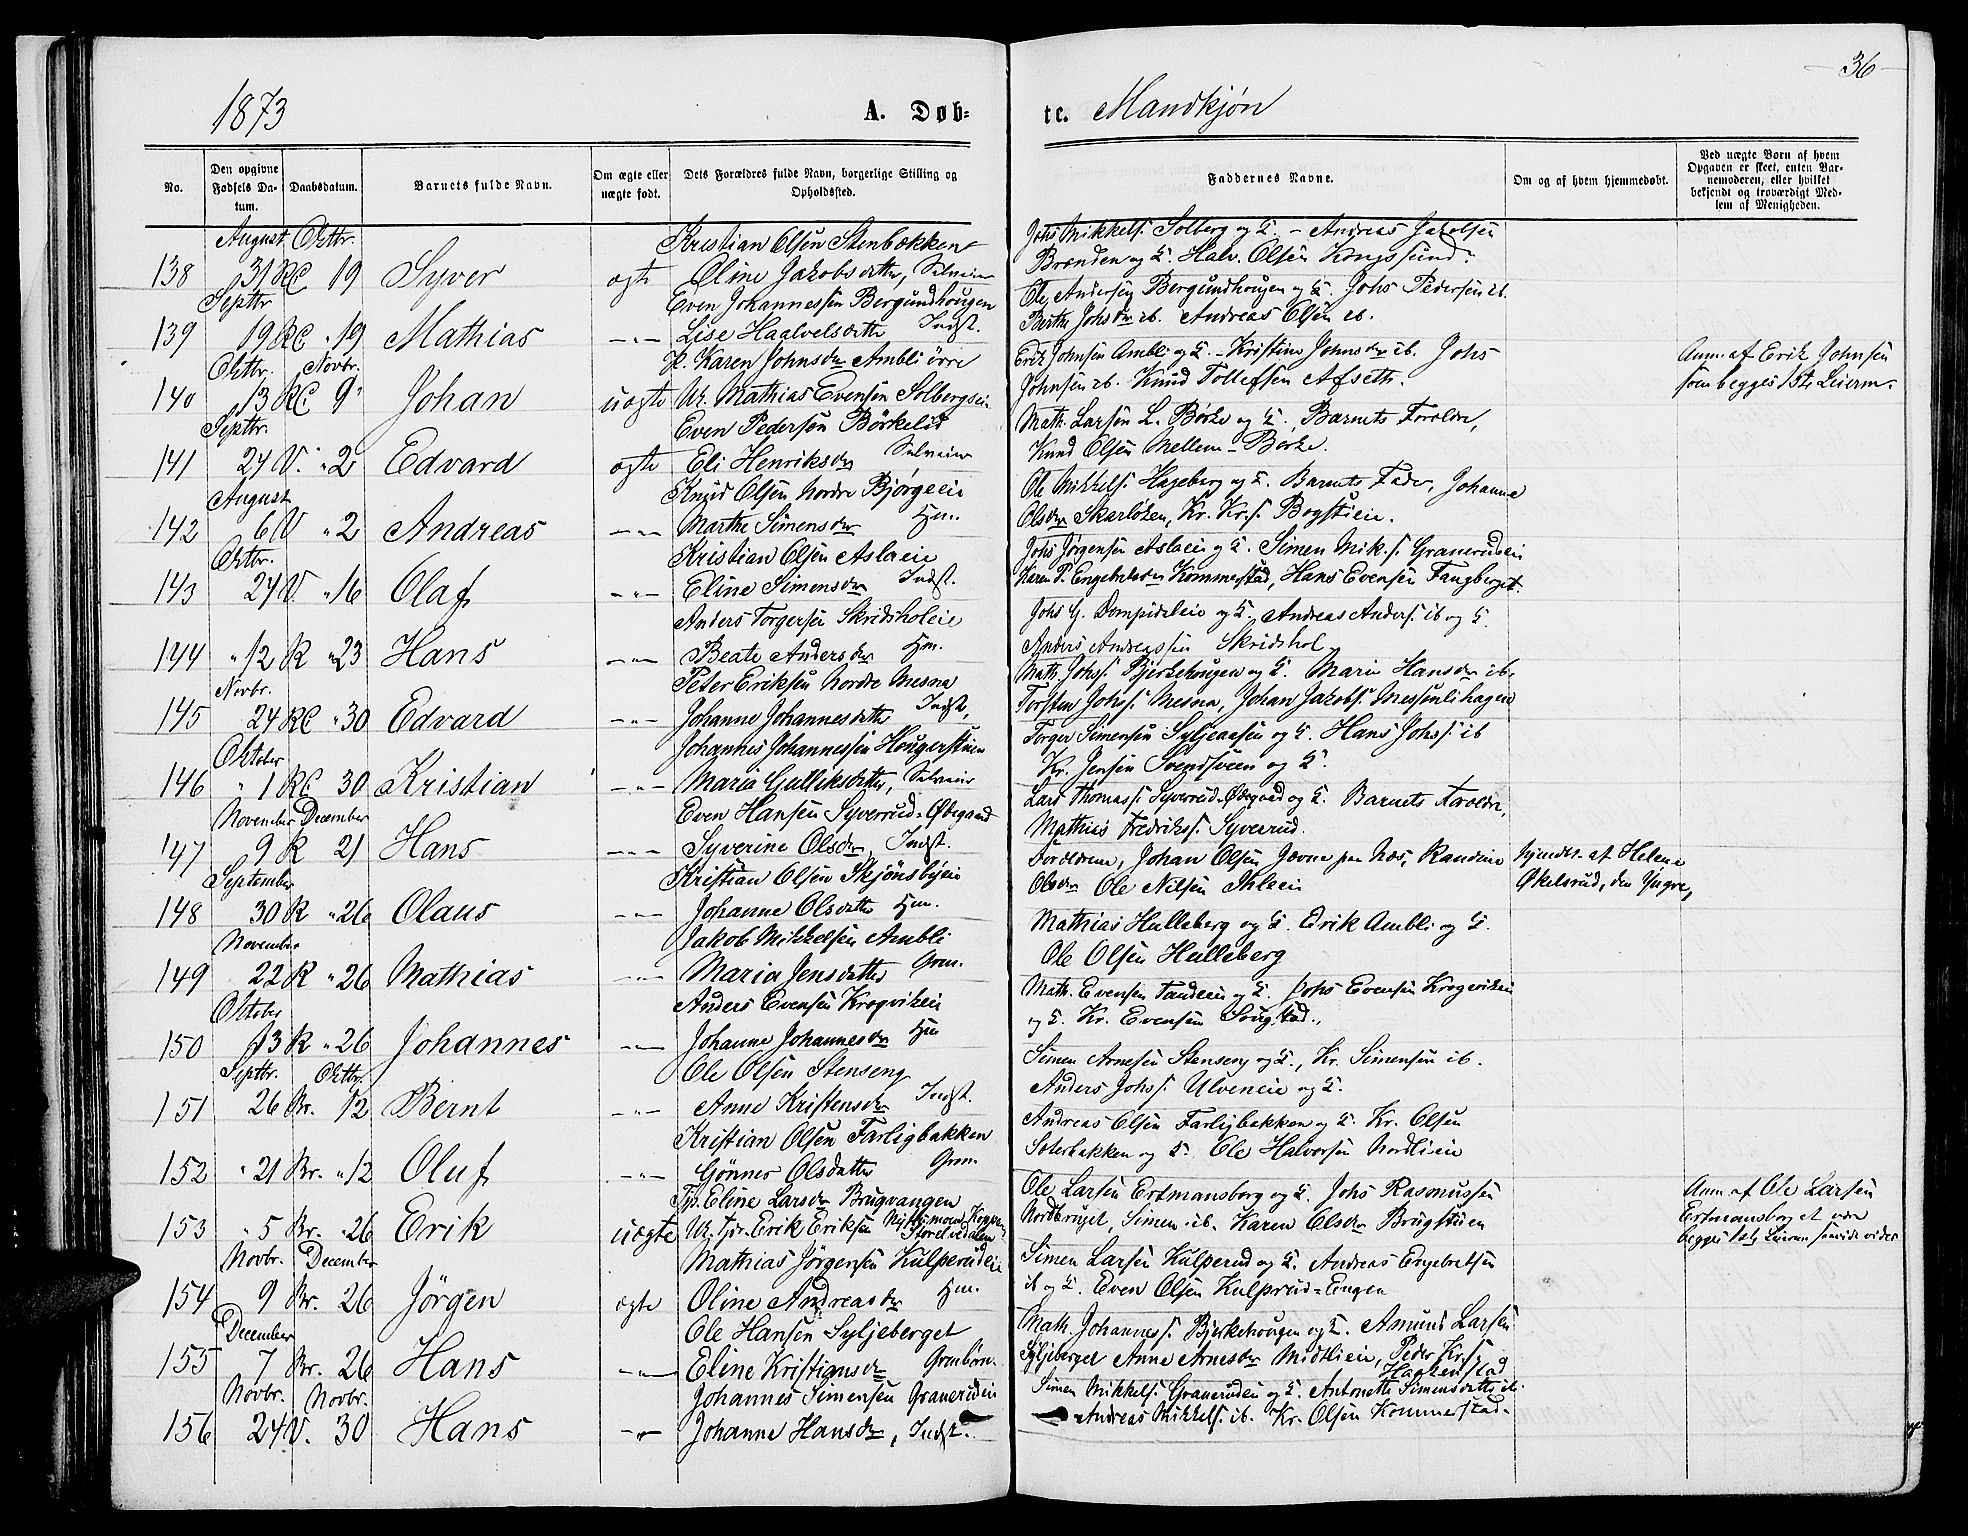 36
1873
A. Døb=
te. Mandkjøn
No.
Den opgivne Fødsels Da-tum.
Daabsdatum.
Barnets fulde Navn.
Om ægte eller uægte født.
Dets Forældres fulde Navn, borgerlige Stilling og Opholdssted.
Faddernes Navne.
Om og af hvem hjemmedøbt.
Ved uægte Børn af hvem Opgaven er skeet, enten Bar-nemoderen, eller hvilket bekjendt og troværdigt Med-lem af Menigheden.
August Oktbr. Kristian Olsen Stenbækken Johs Mikkels. Solberg og K. - Andreas Jakobsen
138 31 RC 19 Syver ægte Oline Jakobsdatter, Selveier Brænden og K. Halv. Olsen Kongssund.
Septbr Even Johannessen Bergundhougen Ole Andersen Bergundhougen og K. Johs Pedersen ib.
139 19 RC " 19 Mathias -"- Lise Haalvelsdatter Indst. Berthe Johsdr ib. Andreas Olsen ib.
Oktbr. Novbr. P. Karen Johnsdr Ambli övre Erik Johnsen Ambli og K. - Kristine Johnsdr ib. Johs Anm. af Erik Johnsen
140 13 RC 9 Johan uægte U. Mathias Evensen Solbergei Johnsen ib. Knud Tollefsen Afseth. som begges 1ste Leierm.
Septbr. Even Pedersen Börkelid Math. Larsen L. Börke og K., Barnets Forældre,
141 24 V. " 2 Edvard ægte Eli Henriksdr Selveier Knud Olsen Mellem-Börke.
August Knud Olsen Nordre Bjørgeeie Ole Mikkels. Hageberg og K. Barnets Fader, Johanne
142 6 V " 2 Andreas -"- Marthe Simensdr Hm. Olsdr Skarlöken, Kr. Kr.s. Bogstieie.
Oktbr. Kristian Olsen Aslaeie Johs Jørgensen Aslaeie og K. Simen Mik.s. Granerudeie
143 24 V. " 16 Olaf -"- Eline Simensdr Indst. Karen P. Engebretsdr Kommerstad, Hans Evensen Fangberget.
Anders Torgersen Skridsholeie Johs G. Dompideleie og K. Andreas Anders. ib og K.
144 " 12 R " 23 Hans -"- Beate Andersdr Hm. Anders Andreassen Skridshol
Novbr. Peter Eriksen Nordre Mesna Math. Johs. Bjerkehougen og K. Marie Hansdr ib.
145 24 RC " 30 Edvard -"- Johanne Johannesdatter Indst. Torsten Johs. Mesna, Johan Jakobs. Messenlihagen
Oktober Johannes Johannessen Hougerstuen Torger Simensen Syljeaasen og K. Hans Johs. ib
146 " 1 RC 30 Kristian -"- Maria Gulliksdatter, Selveier Kr. Jensen Svendsveen og K.
November December Even Hansen Syverrud-Ødegaard Lars Thomass. Syverrud-Ødegaard og K. Barnets Forældre,
147 9 R 21 Hans -"- Syverine Olsdr, Indst. Mathias Fredriks. Syverrud.
September Kristian Olsen Skjönsbyeie Forældrene, Johan Olsen Jævne paa Næs, Randine hjmdt. af Helene
148 30 R " 26 Olaus -"- Johanne Olsdatter Hm. Olsdr Ole Nilsen Ihleeie Økelsrud, den Yngre,
November Jakob Mikkelsen Ambli Mathias Hulleberg og K. Erik Ambli og K.
149 22 R " 26 Mathias -"- Maria Jensdatter Grm. Ole Olsen Hulleberg
Oktober Anders Evensen Krogvikeie Math. Evensen Tandeie og K. Johs Evensen Krogvikeie
150 13 R " 26 Johannes -"- Johanne Johannesdr Hm og K. Kr. Evensen Sougstad.
Septbr. Oktbr. Ole Olsen Stenseng Simen Arnesen Stenseng og K., Kr. Simensen ib.
151 26 Br. 12 Bernt -"- Anne Kristensdr Indst. Anders Johs. Ulveneie og K.
Kristian Olsen Farligbakken Andreas Olsen Farligbakken og K. Kr. Olsen
152 " 21 Br. " 12 Oluf -"- Gönner Olsdatter Grm. Soterbakken og K. Ole Halvorsen Nordlieie
Tp. Eline Larsdr Brugvangen Ole Larsen Ertmansborg og K. Johs Rasmussen Anm. af Ole Larsen
153 " 5 Br. " 26 Erik uægte U. Gjör. Erik Eriksen Storelvedalen Nordbruget, Simen ib. Karen Olsdr Brugstuen Ertmansborg at være
Novbr. December Mathias Jörgensen Kulperudeie Simen Larsen Kulperud og K. Andreas Engebretsen begges 1ste Leierm saavidt vides
154 9 Br. 26 Jörgen ægte Oline Andreasdr Hm. ib og K. Even Olsen Kulprud-Engen
December Ole Hansen Syljeberget Math. Johanness. Bjerkehougen og K. Amund Larsen
155 7 Br. 26 Hans -"- Eline Kristiansdr Grmbörn. Syljeberget Anne Arnesdr Midtlieie, Peder Kr.s. Haakenstad
Novbr. Novbr. Johannes Simensen Granerudeie Simen Mikkels. Granerudeie og K. Antonette Simensdatter ib.
156 24 V. 30 Hans -"- Johanne Hansdr, Indst. Andreas Mikkels. ib. Kr. Olsen Kommerstad.